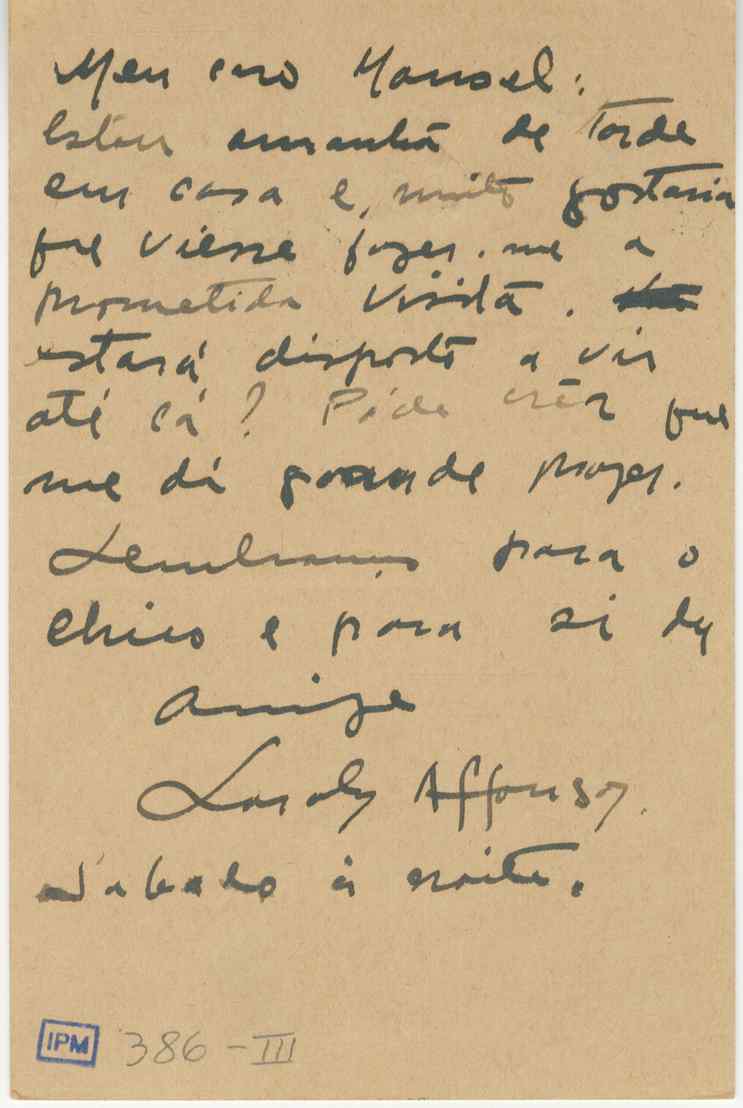 Meu caro Manoel:
Estou amanhã de tarde
em casa e, muito gostaria
que viesse fazer-me a
prometida visita.
estará disposto a vir
até cá? Póde crêr que
me dá grande prazer.
Lembranças para o
Chico e para si do
amigo
Affonso.
Sabado à noite.
IPM 386-III